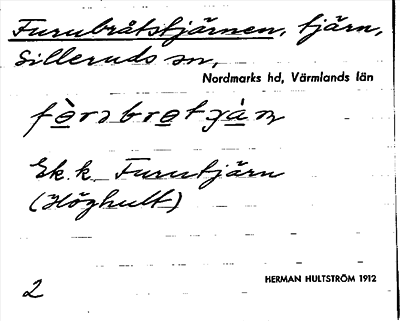 Furubråtstjärnen, tjärn,
Silleruds sn,
Nordmarks hd, Värmlands län
Ek. k. Furutjärn
(Höghult)
HERMAN HULTSTRÖM 1912
2